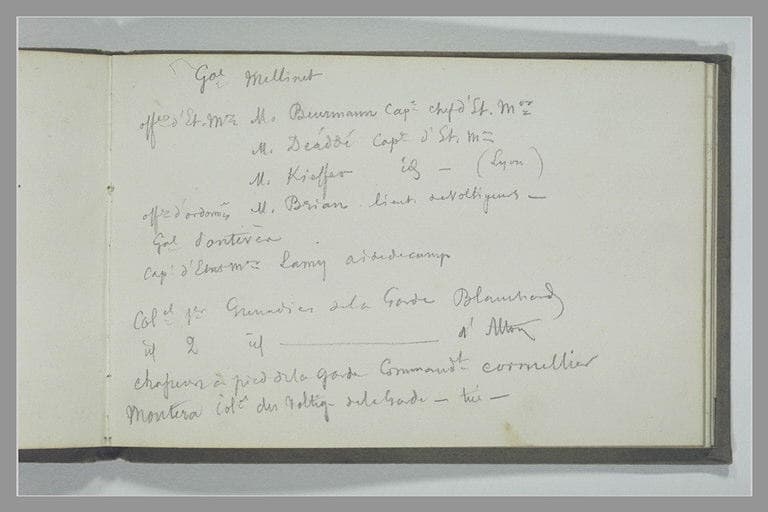 Gal Mellinet
offer d'Et. Mor M. Beurmann Capt chef d'Et. Mor
M. Deaddé Capt d'Et. Mor
M. Kieffer id — (Lyon)
offer d'ordonce M. Brian lieut. de voltigeurs —
Gal
Capt d'Etat Mor Lamy aide de camp
Colel 1er Grenadies de la Garde Blanchard
id 2 id — d'Alton
chasseurs à pied de la Garde Commandt cornullier
Montera Colel des Voltig. de la Garde — tué —